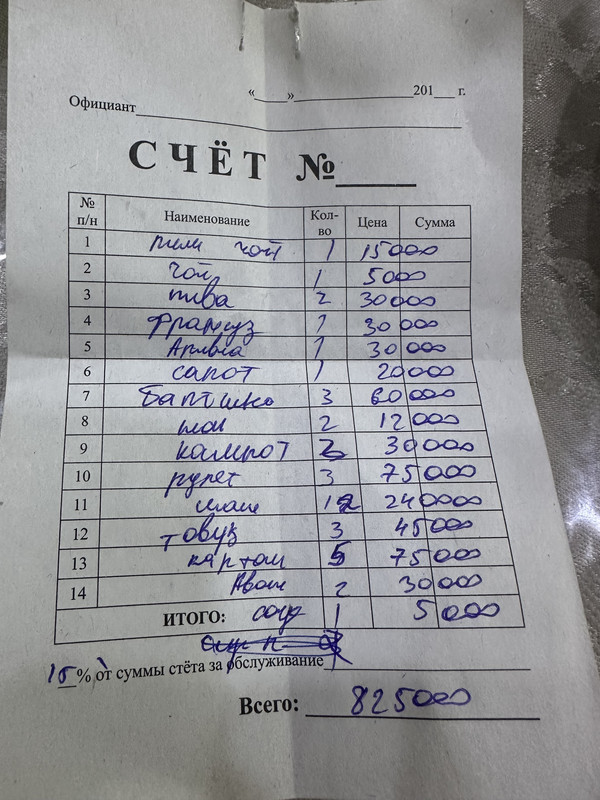 «____»____________________201___ г.
Официант
СЧЁТ №_____
№ п/н Наименование Кол-во Цена Сумма
1 чой 1 15000
2 чой 1 5000
3 пива 2 30000
4 Француз 1 30000
5 1 30000
6 салот 1 20000
7 3 60000
8 2 12000
9 кампот 30000
10 рулет 3 75000
11 12 240000
12 Товук 3 45000
13 картош 5 75000
14 2 30000
ИТОГО: соус 1 5000
15% от суммы счёта за обслуживание
Всего: 825000